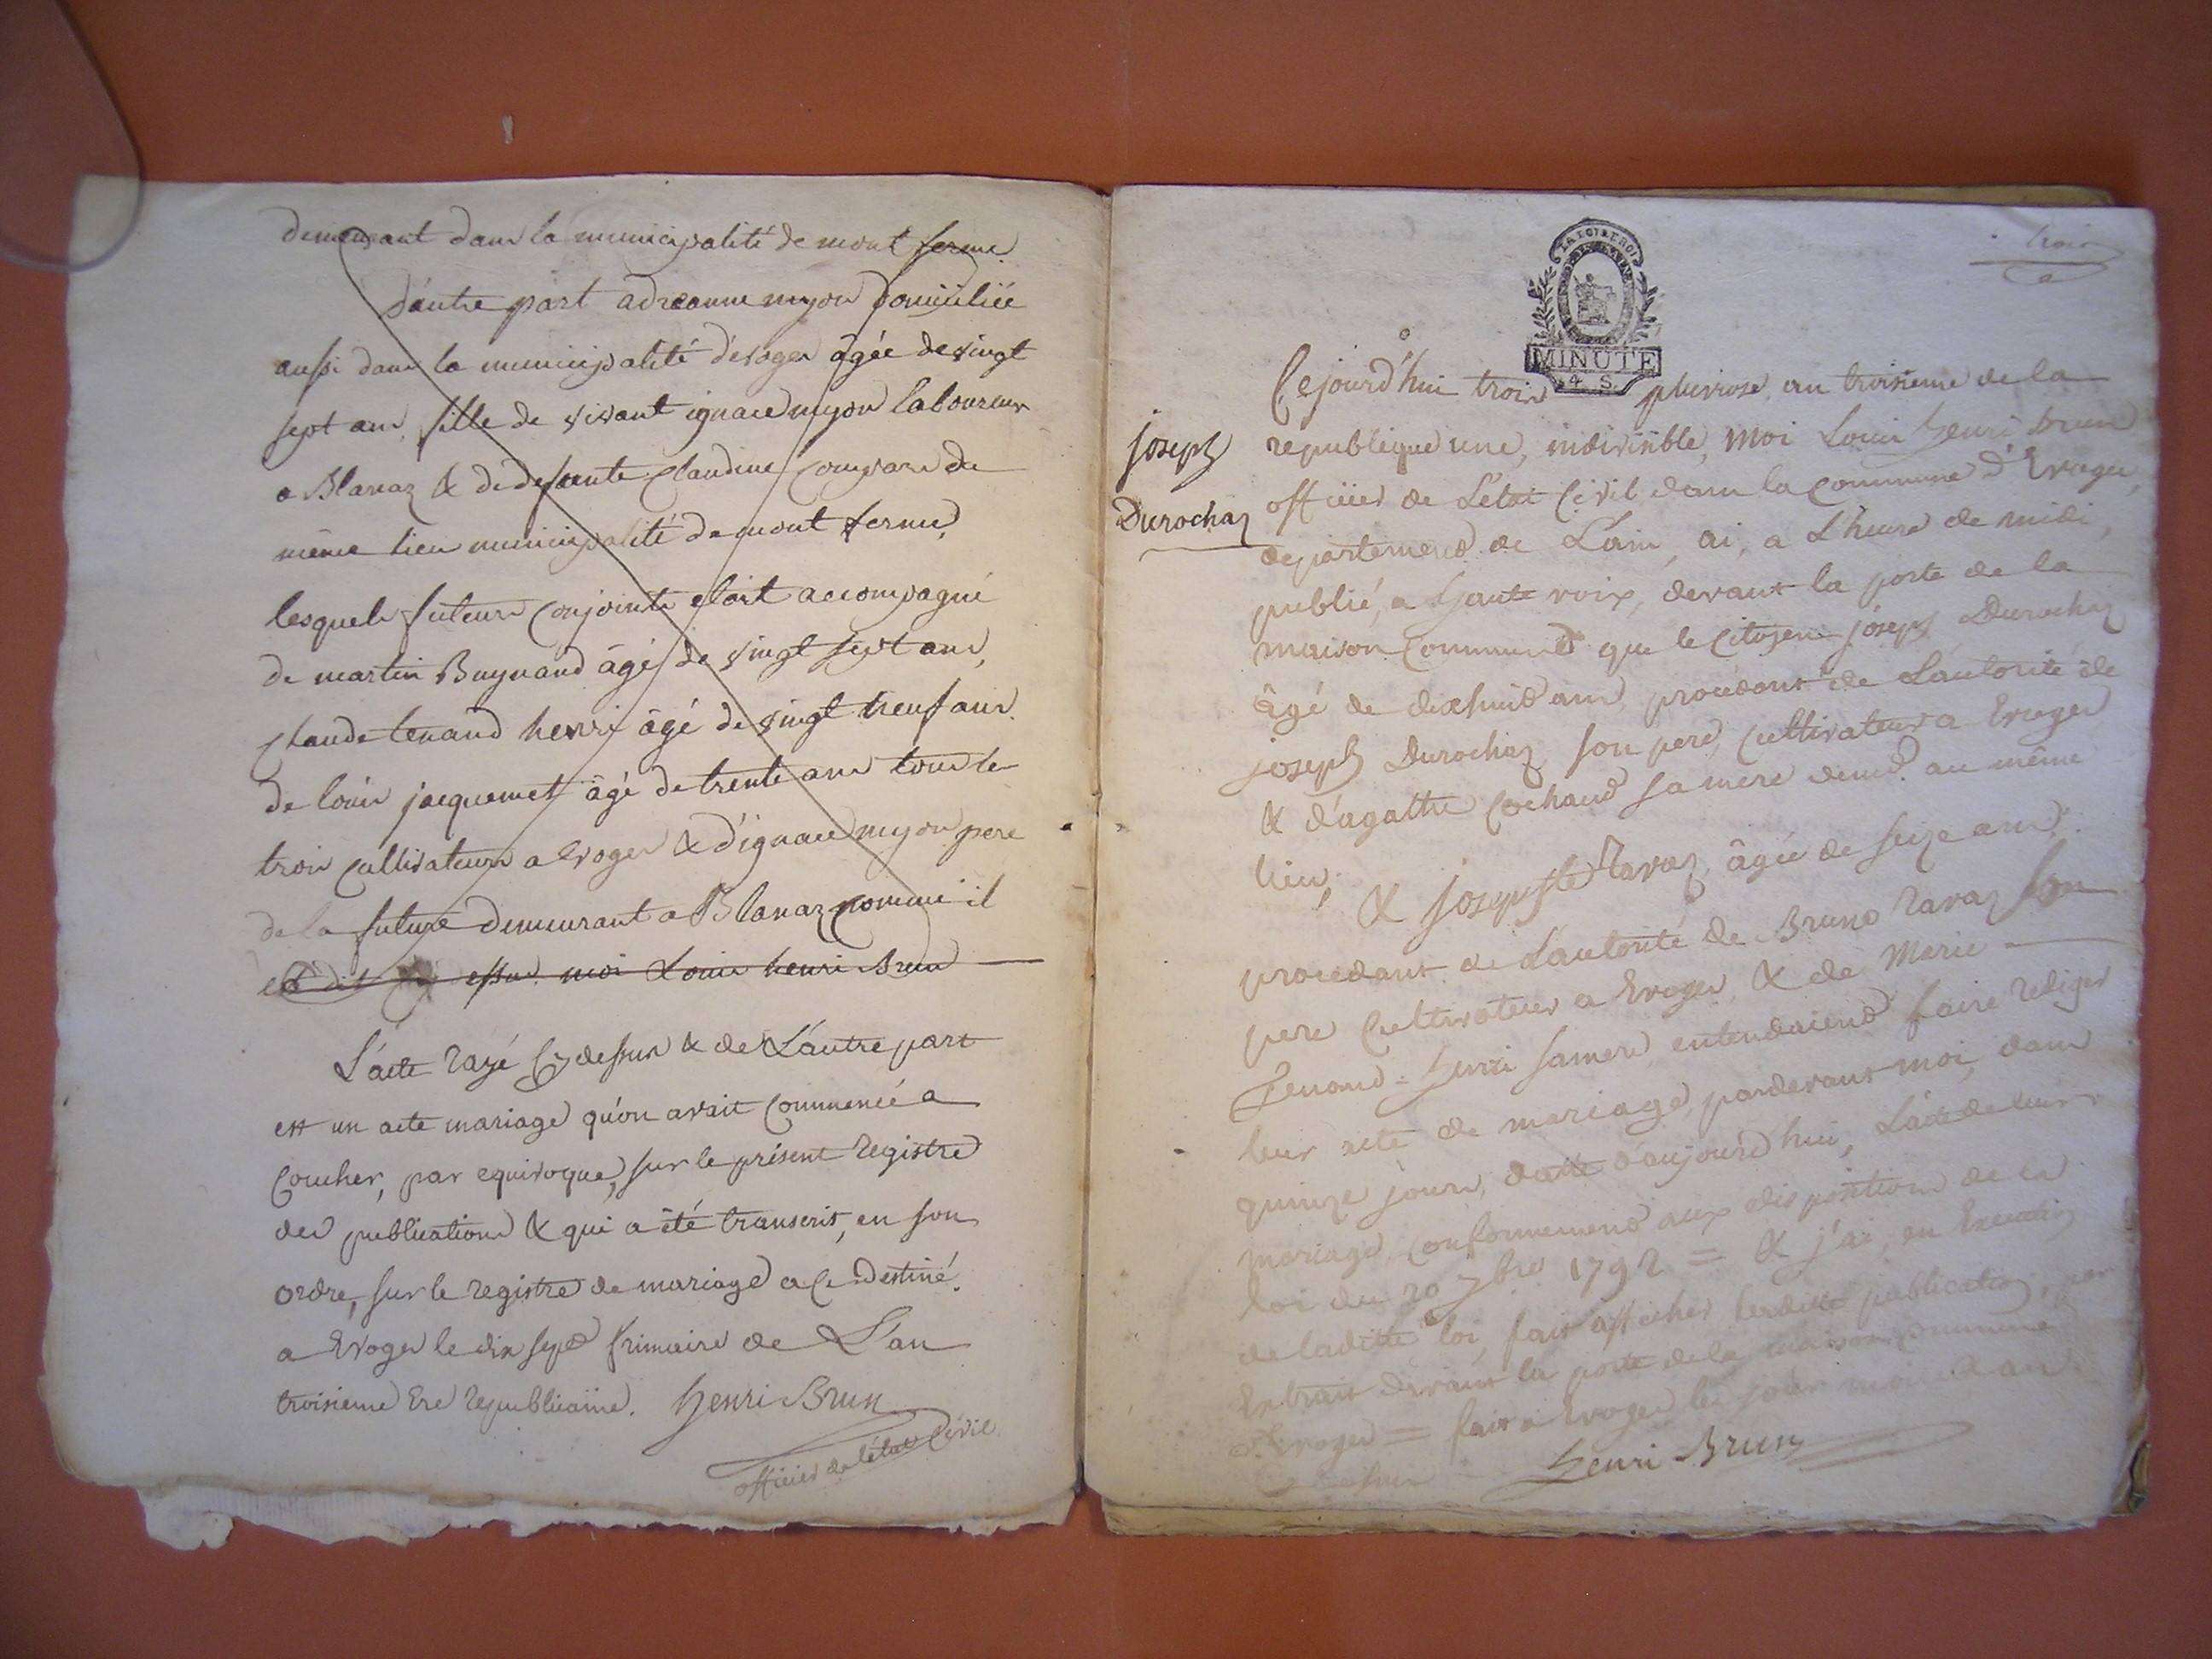 demeurant dans la municipalité de mont ferme
d'autre part adreanne myon domiciliée
aussi dans la municipalité d'evoges âgée de vingt
sept ans, fille de vivant ignace myon laboureur
a Blanaz & de defunte Claudine Compare du
même lieu municipalité de mont ferme,
lesquels futeurs conjoints etoit accompagné
de martin Buynand âgé de vingt sept ans,
Claude tenand henri âgé de vingt neuf ans
de louis jacquemet âgé de trente ans tous le
trois cultivateurs a evoges & d'ignace myon pere
de la future demeurant a Blanaz comme il
est dit essus moi Louis henri Brun
L'acte rayé Cy dessus & de L'autre part
est un acte mariage qu'on avait commencé a
coucher, par equivoque, sur le présent registre
des publications & qui a été transcrit, en son
ordre, sur le registre de mariage a ce destiné.
a Evoges le dix sept frimaire de L'an
troisieme Ere republicaine. Henri Brun
officier de l'état Civil
trois
LA LOI LE ROI
MINUTE
4. S.
joseph
Durochaz
Cejourd'hui trois pluviose, an troisieme de la
republique une, indivisible, moi Louis henri brun
officier de L'etat Civil dans la Commune d'Evoges,
departement de L'ain, ai, a L'heure de midi,
publié, a haute voix, devant la porte de la
maison Commune que le Citoyen joseph Durochaz
âgé de dixhuit ans, procedant de L'autorité de
joseph Durochaz son pere, Cultivateur a Evoges
& d'agathe Cochand sa mere demt. au même
lieu,
& josephte Ravaz, âgée de seize ans,
procedant de L'autorité de Bruno Ravaz son
pere Cultivateur a Evoges, & de Marie
Tenand-henri sa mere, entendoient faire rediger
leur acte de mariage, pardevant moi, dans
quinze jours, datte d'aujourd'hui, L'acte de leur
mariage, conformement aux dispositions de la
loi du 20 7bre 1792 = & j'ai, en Execution
de laditte loi, fait afficher laditte publication, par
Extrait devant la porte de la maison commune
d'Evoges = fait a Evoges les jour mois & an
Cy dessus Henri Brun